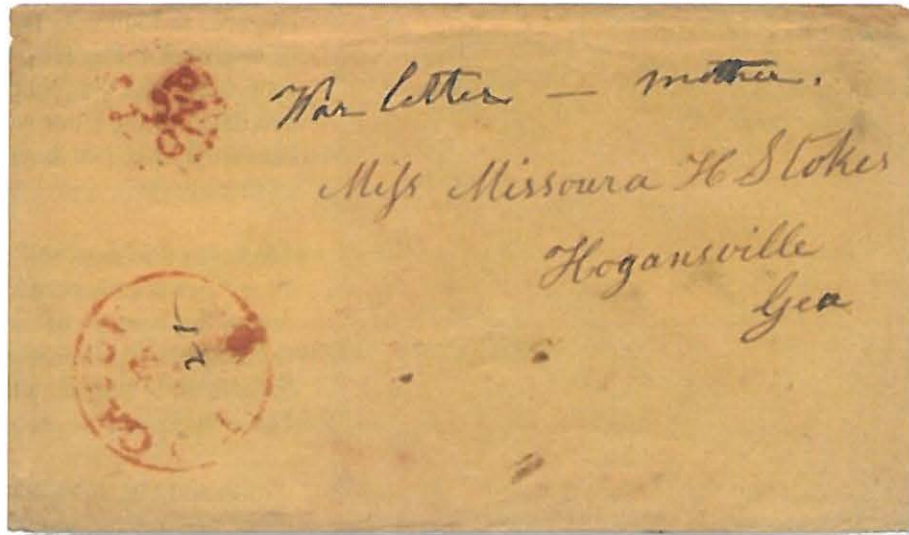 War letter — mother.
Miss Missoura H Stokes
Hogansville
Geo
21